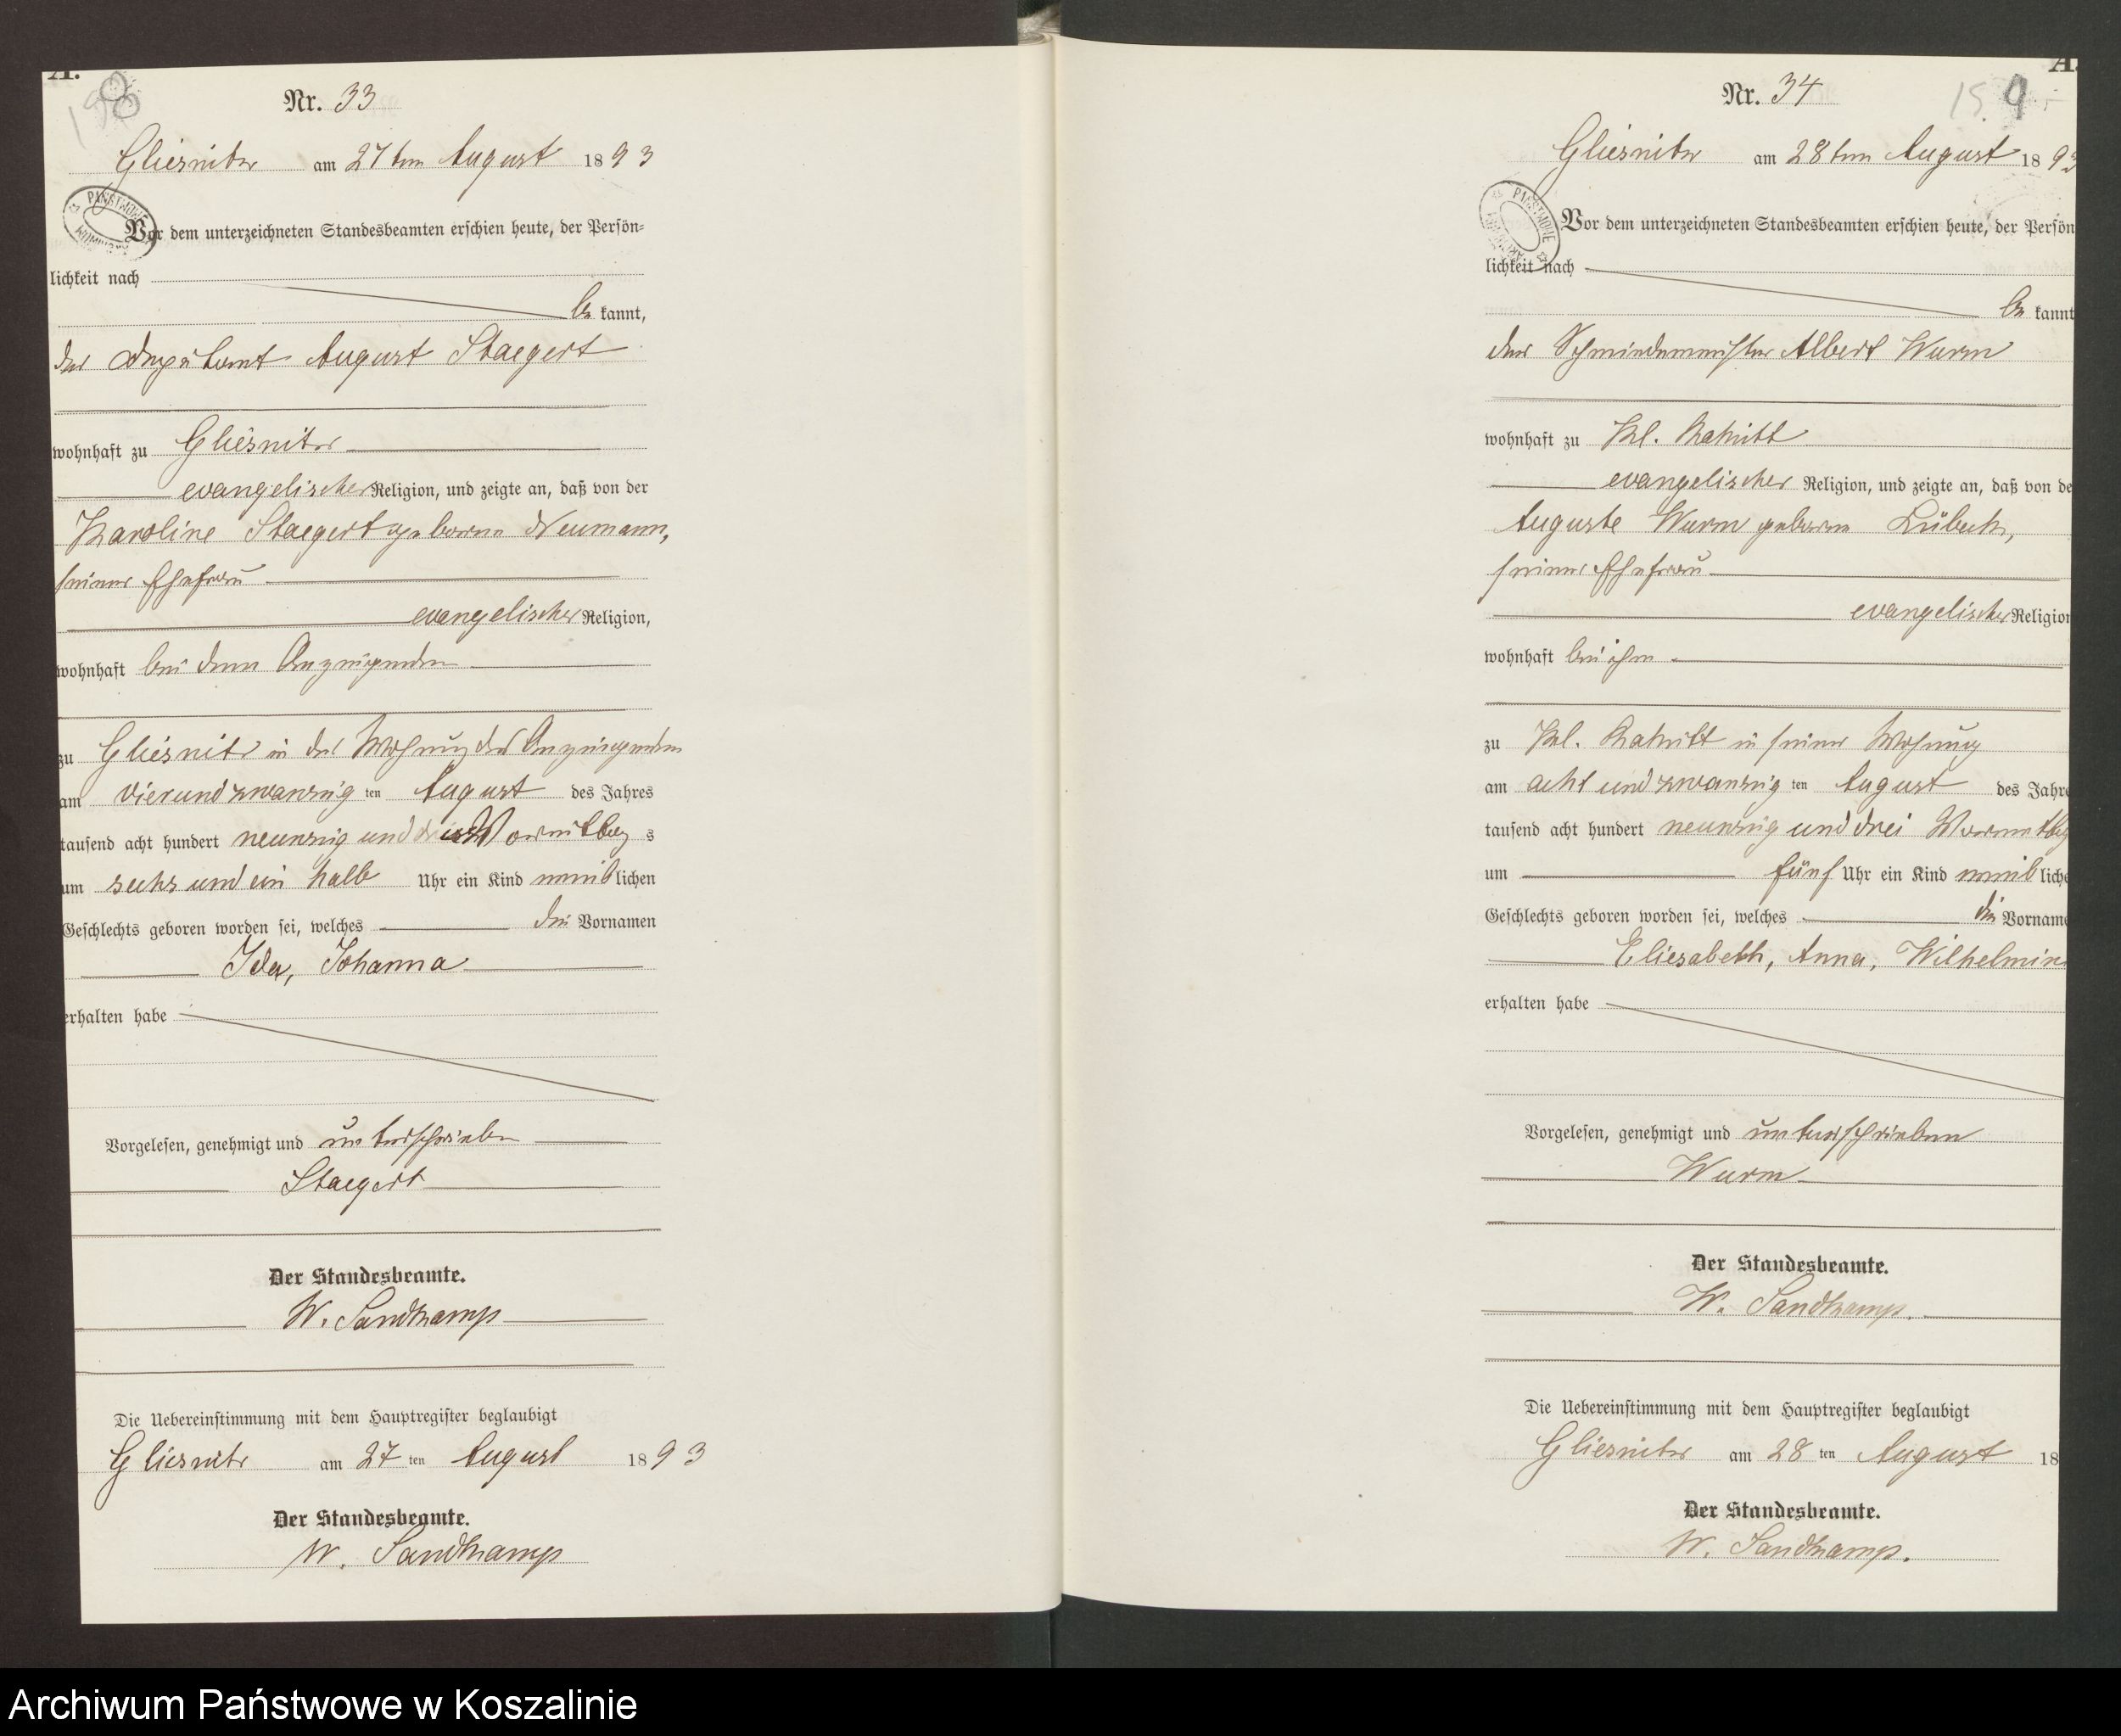 A.
Nr. 33
Gliesnitz am 27ten August 1893
Vor dem unterzeichneten Standesbeamten erschien heute, der Persön-
lichkeit nach
be kannt,
der Deputant August Staegert
wohnhaft zu Gliesnitz
evangelischer Religion, und zeigte an, daß von der
Karoline Staegert geborne Neumann,
seiner Ehefrau
evangelischer Religion,
wohnhaft bei dem Anzeigenden
zu Gliesnitz in der Wohnung des Anzeigenden
am vierundzwanzig ten August des Jahres
tausend acht hundert neunzig und drei Vormittag s
um sechs und ein halb Uhr ein Kind weib lichen
Geschlechts geboren worden sei, welches die Vornamen
Ida, Johanna
erhalten habe
Vorgelesen, genehmigt und unterschrieben
Staegert
Der Standesbeamte.
W. Sandkamp
Die Uebereinstimmung mit dem Hauptregister beglaubigt
Gliesnitz am 27 ten August 1893
Der Standesbeamte.
W. Sandkamp
A.
Nr. 34
Gliesnitz am 28ten August 1893
PAŃSTWOWE
Vor dem unterzeichneten Standesbeamten erschien heute, der Persön
lichkeit nach
be kannt
der Schmiedemeister Albert Wurm
wohnhaft zu Kl.
evangelischer Religion, und zeigte an, daß von de
Auguste Wurm geborne Lübeck,
seiner Ehefrau
evangelischer Religion
wohnhaft bei ihm
zu Kl. in seiner Wohnung
am acht und zwanzig ten August des Jahre
tausend acht hundert neunzig und drei Vormittag
um fünf Uhr ein Kind weib liche
Geschlechts geboren worden sei, welches die Vorname
Eliesabeth, Anna, Wilhelmine
erhalten habe
Vorgelesen, genehmigt und unterschrieben
Wurm
Der Standesbeamte.
W. Sandkamp.
Die Uebereinstimmung mit dem Hauptregister beglaubigt
Gliesnitz am 28 ten August 18
Der Standesbeamte.
W. Sandkamp.
Archiwum Państwowe w Koszalinie